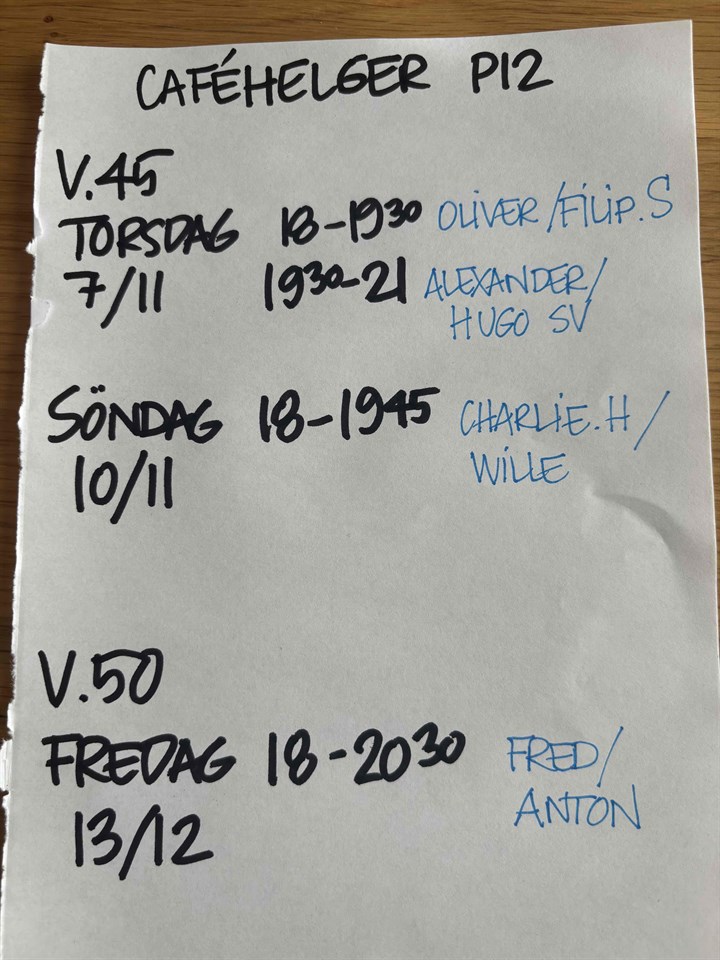 CAFÉHELGER P12
V.45
TORSDAG 18-1930 OLIVER/FILIP.S
7/11 1930-21 ALEXANDER/
HUGO SV
SÖNDAG 18-1945 CHARLIE.H/
10/11 WILLE
V.50
FREDAG 18-2030 FRED/
13/12 ANTON